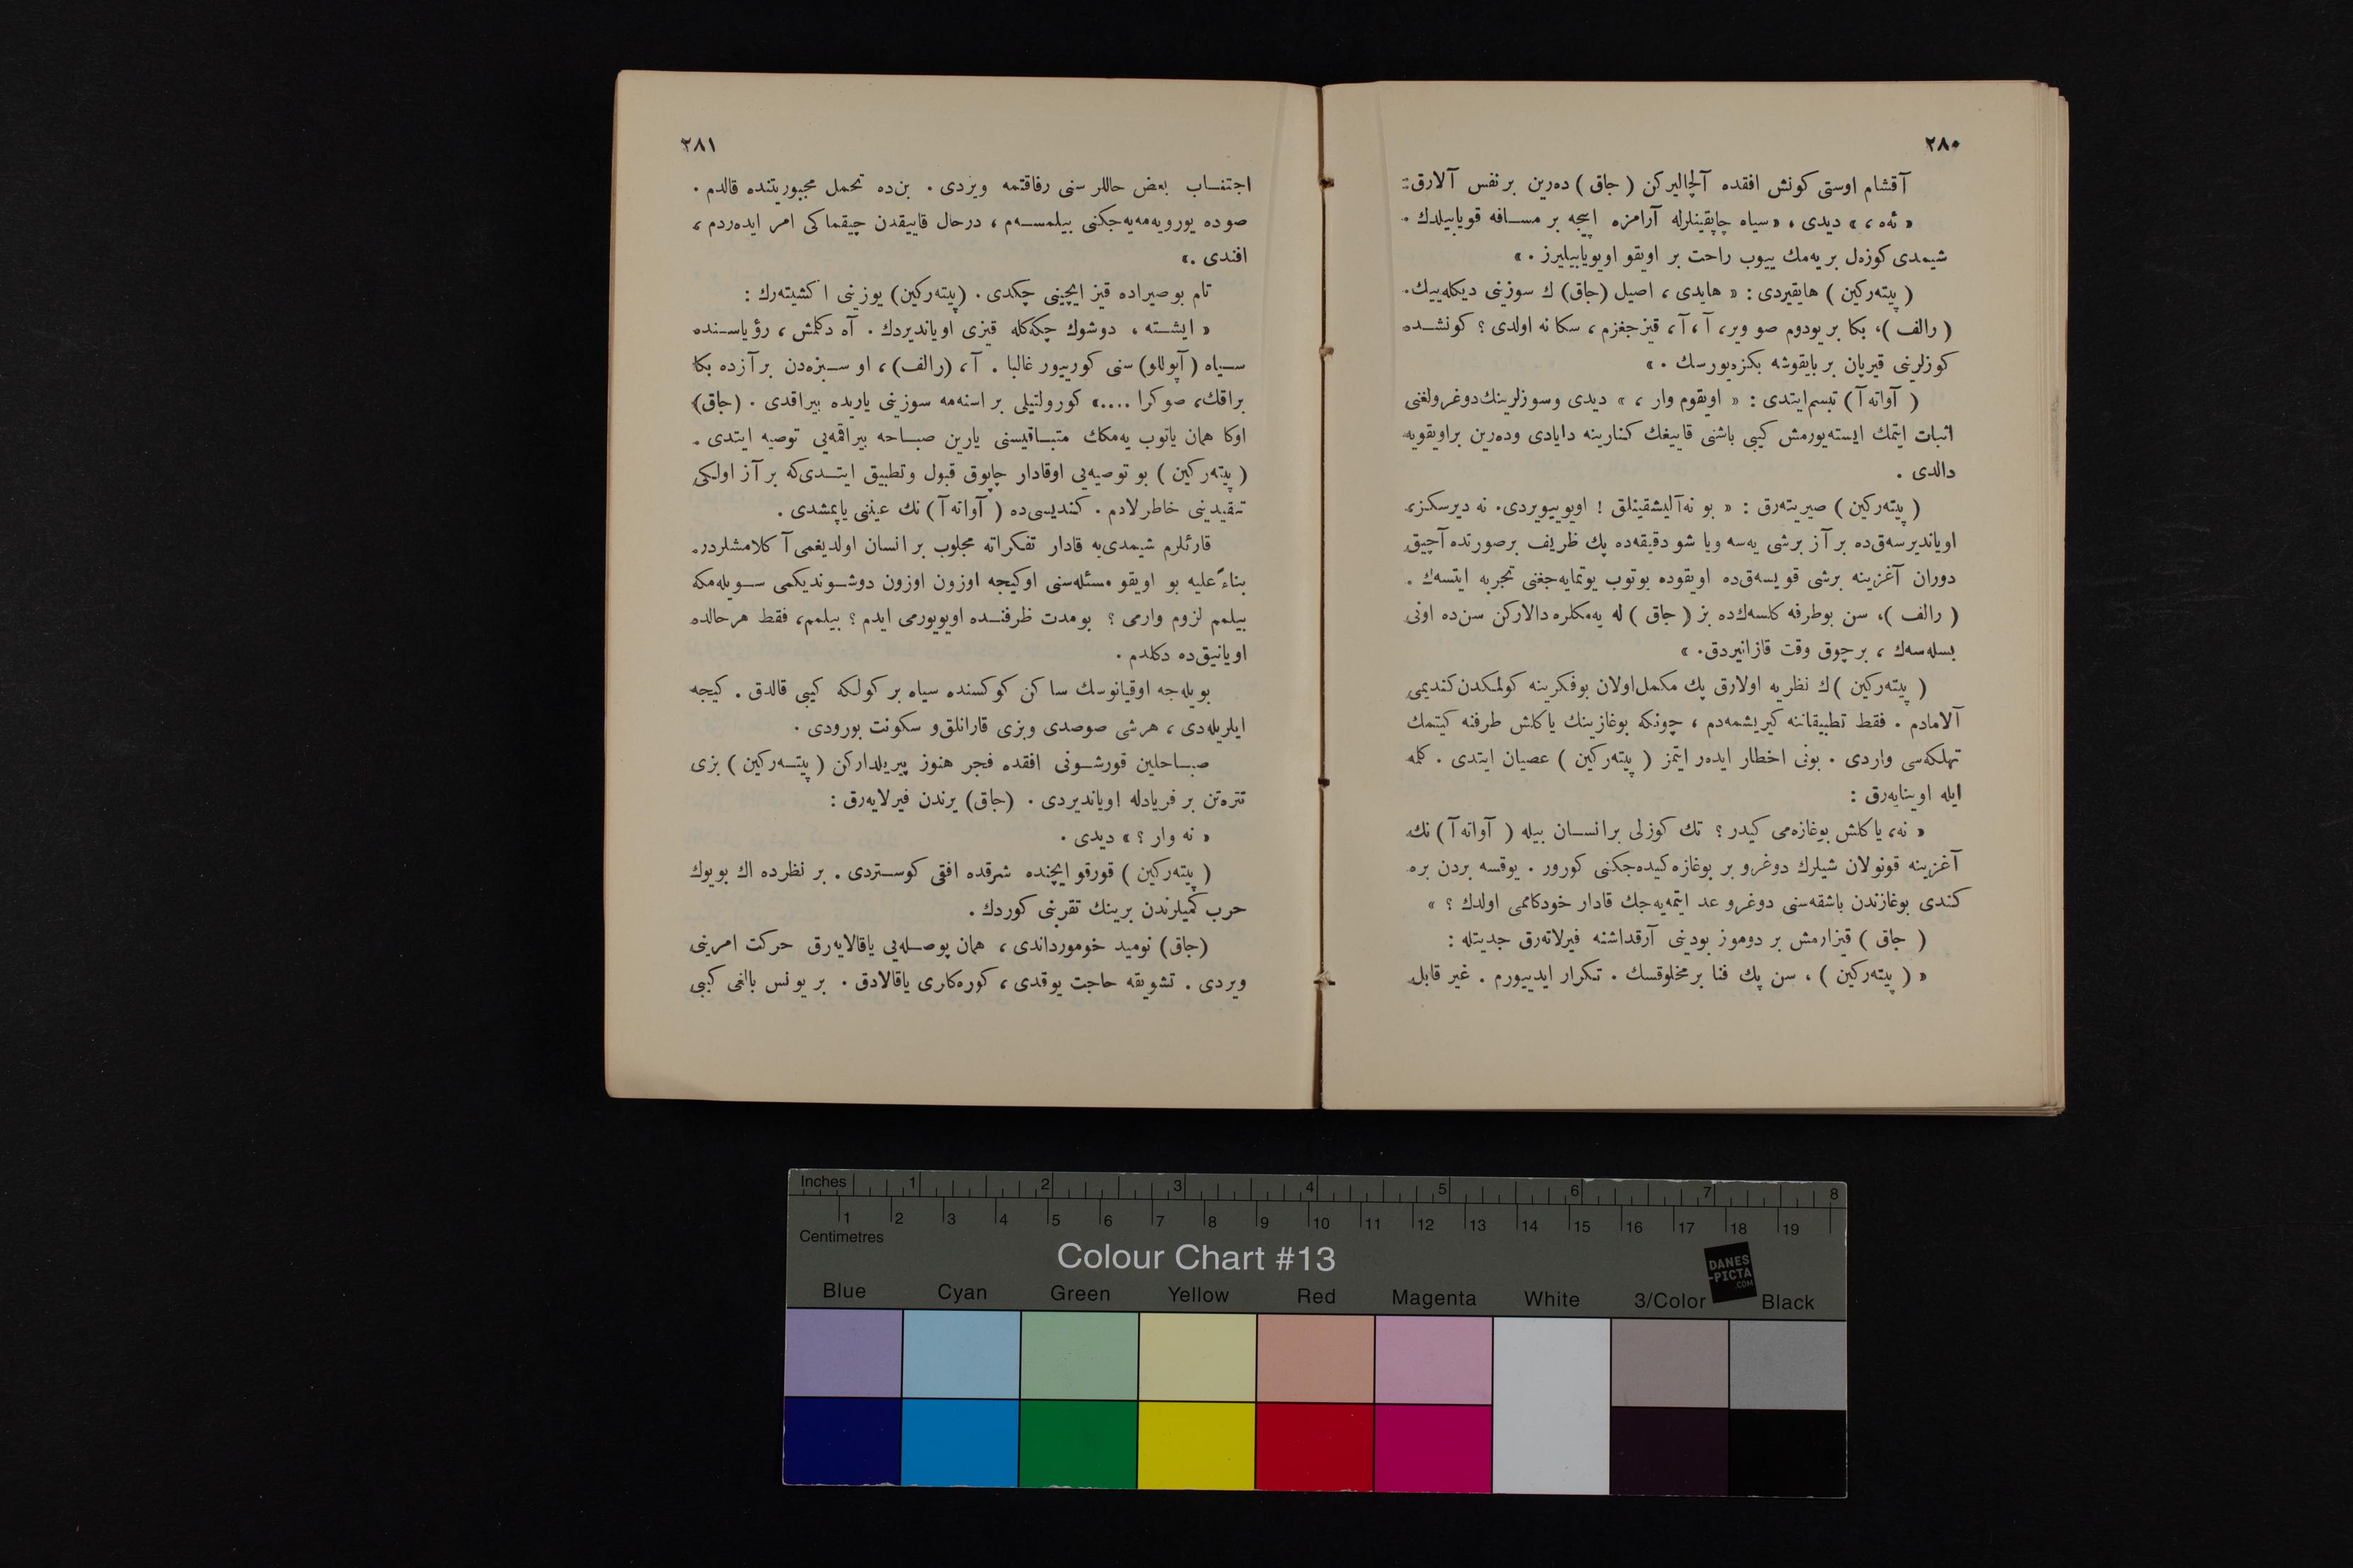 ٢٨٠
آقشام اوستی كونش افقده آلچالیركن ( جاق ) ده‌رین بر نفس آلارق :
« ئه‌ه ، » دیدی ، « سیاه چاپقینلرله آرامزه اییجه بر مسافه قویابیلدك .
شیمدی كوزه‌ل بر یه‌مك ییوب راحت بر اویقو اویویابیلیرز . »
( پیته‌ركین ) هایقیردی : « هایدی ، اصیل (جاق) ك سوزینی دیكله‌ییك .
( رالف ) ، بكا بر یودوم صو ویر ، آ ، آ ، قیزجغزم ، سكا نه اولدی ؟ كونشده
كوزلرینی قیرپان بر بایقوشه بكزه‌یورسك . »
( آواته‌آ ) تبسم ایتدی : « اویقوم وار ، » دیدی وسوزلرینك دوغرولغنی
اثبات ایتمك ایسته‌یورمش كیبی باشنی قاییغك كنارینه دایادی وده‌رین براویقویه
دالدی .
( پیته‌ركین ) صیریته‌رق : « بو نه آلیشقینلق ! اویوییویردی. نه دیرسكز ،
اویاندیرسه‌ق‌ده بر آز برشی یه‌سه ویا شو دقیقه‌ده پك ظریف برصورتده آچیق
دوران آغزینه برشی قویسه‌ق‌ده اویقوده یوتوب یوتمایه‌جغنی تجربه ایتسه‌ك .
( رالف ) ، سن بوطرفه كلسه‌ك‌ده بز ( جاق ) له یه‌مكلره دالاركن سن‌ده اونی
بسله‌سه‌ك ، برچوق وقت قازانیردق. »
( پیته‌ركین )ك نظریه اولارق پك مكمل اولان بوفكرینه كولمكدن كندیمی
آلامادم . فقط تطبیقاتنه كیریشمه‌دم ، چونكه بوغازینك یاكلش طرفنه كیتمك
تهلكه‌سی واردی . بونی اخطار ایده‌ر ایتمز ( پیته‌ركین ) عصیان ایتدی . كلمه
ایله اوینایه‌رق :
« نه ، یاكلش بوغازه‌می كیدر ؟ تك كوزلی برانسان بیله ( آواته‌آ ) نك
آغزینه قونولان شیلرك دوغرو بر بوغازه كیده‌جكنی كورور . یوقسه بردن بره
كندی بوغازندن باشقه‌سنی دوغرو عد ایتمه‌یه‌جك قادار خودكاممی اولدك ؟ »
( جاق ) قیزارمش بر دوموز بودینی آرقداشنه فیرلاته‌رق جدیتله :
« ( پیته‌ركین ) ، سن پك فنا برمخلوقسك . تكرار ایدییورم . غیر قابل
٢٨١
اجتناب بعض حاللر سنی رفاقتمه ویردی . بن‌ده تحمل مجبوریتنده قالدم .
صوده یورویه‌مه‌یه‌جكنی بیلمسه‌م ، درحال قاییقدن چیقماكی امر ایده‌ردم ،
افندی . »
تام بو صیراده قیز ایچینی چكدی . (پیته‌ركین) یوزینی اكشیته‌رك :
« ایشته ، دوشوك چكه‌كله قیزی اویاندیردك . آه دكلمش ، رؤیاسنده
سیاه ( آپوللو) سنی كورییور غالبا . آ ، (رالف) ، او سبزه‌دن برآزده بكا
براقك ، صوكرا ....» كورولتیلی بر اسنه‌مه سوزینی یاریده بیراقدی . (جاق)
اوكا همان یاتوب یه‌مكك متباقیسنی یارین صباحه بیراقمه‌یی توصیه ایتدی .
( پیته‌ركین ) بو توصیه‌یی اوقادار چاپوق قبول وتطبیق ایتدی‌كه بر آز اولكی
تنقیدینی خاطرلادم . كندیسی‌ده ( آواته‌آ ) نك عیننی یاپمشدی .
قارئلرم شیمدی‌یه قادار تفكراته مجلوب بر انسان اولدیغمی آكلامشلردر .
بناءً علیه بو اویقو مسئله‌سنی اوكیجه اوزون اوزون دوشوندیكمی سویله‌مكه
بیلمم لزوم وارمی ؟ بومدت ظرفنده اویویورمی ایدم ؟ بیلمم ، فقط هرحالده
اویانیق‌ده دكلدم .
بویله‌جه اوقیانوسك ساكن كوكسنده سیاه بر كولكه كیبی قالدق . كیجه
ایلریله‌دی ، هرشی صوصدی وبزی قارانلق‌و سكونت بورودی .
صباحلین قورشونی افقده فجر هنوز پیریلداركن ( پیته‌ركین ) بزی
تتره‌تن بر فریادله اویاندیردی . (جاق) یرندن فیرلایه‌رق :
« نه وار ؟ » دیدی .
( پیته‌ركین ) قورقو ایچنده شرقده افقی كوستردی . بر نظرده اك بویوك
حرب كمیلرندن برینك تقربنی كوردك .
(جاق) نومید خومورداندی ، همان پوصله‌یی یاقالایه‌رق حركت امرینی
ویردی . تشویقه حاجت یوقدی ، كوره‌كلری یاقالادق . بر یونس بالغی كیبی
Inches 1 2 3 4 5 6 7 8
1 2 3 4 5 6 7 8 9 10 11 12 13 14 15 16 17 18 19
Centimetres
Colour Chart #13
DANES
-PICTA
.COM
Blue Cyan Green Yellow Red Magenta White 3/Color Black